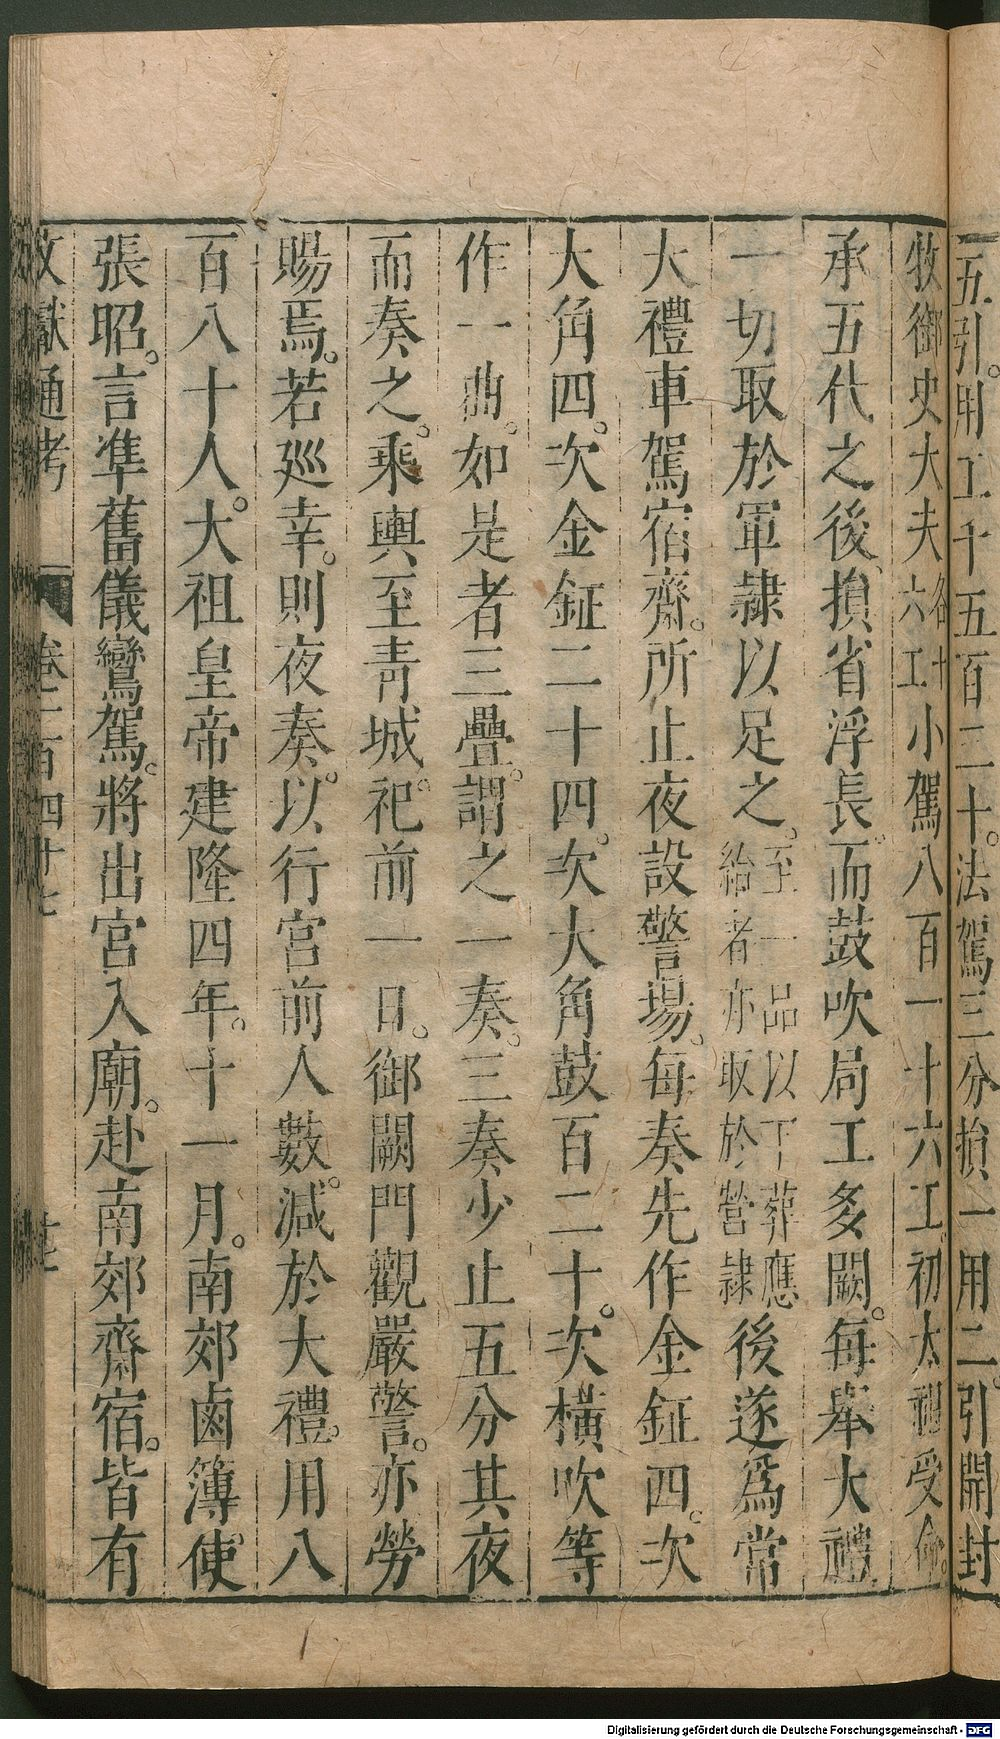 五引。用工千五百二十。法駕三分損一用二。引開封
牧御史大夫各十六工小駕八百一十六工。初太祖受命。
承五代之後、損省浮長。而鼓吹局工多闕。每舉大禮
一切取於軍隸以足之。至一品以下葬應給者亦取於營隸後遂爲常
大禮車駕宿齋。所止夜設警場。每奏先作金鉦四。次
大角四。次金鉦二十四。次大角鼓百二十。次橫吹等
作一曲。如是者三疊。謂之一奏。三奏少止五分其夜
而奏之。乘輿至青城。祀前一日。御闕門觀嚴警。亦勞
賜焉。若廵幸。則夜奏。以行宮前人數。減於大禮。用八
百八十人。大祖皇帝建隆四年。十一月。南郊鹵簿使
張昭。言準舊儀鸞駕。將出宮入廟。赴南郊齋宿。皆有
文獻通考 卷之一百四十七 廿七
Digitalisierung gefördert durch die Deutsche Forschungsgemeinschaft - DFG